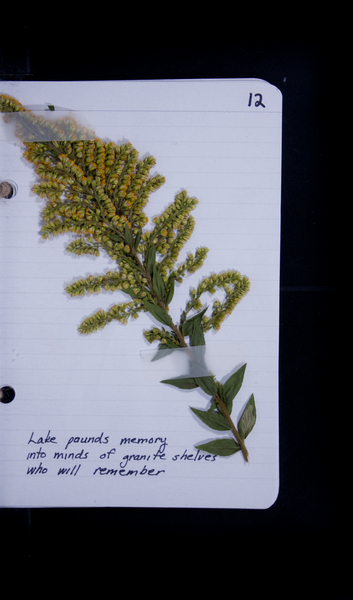 12
Lake paunds memory
into minds of granite shelves
who will remember